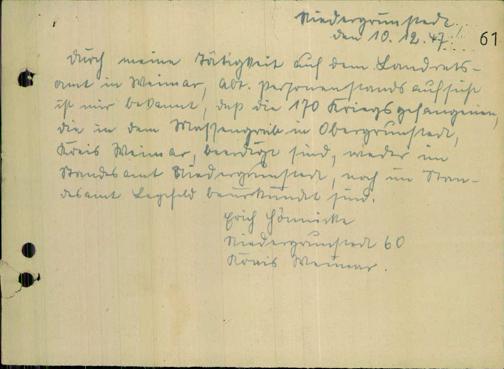 Niedergrunstedt,
den 10.12.47.
61
Durch meine Tätigkeit auf dem Landrats-
amt in Weimar, Abt. Personenstandsaufsicht
ist mir bekannt, daß die 170 Kriegsgefangenen,
die in dem Massengrab in Obergrunstedt,
Kreis Weimar, beerdigt sind, weder im
Standesamt Niedergrunstedt, noch im Stan-
desamt Legefeld beurkundet sind.
Erich
Niedergrunstedt 60
Kreis Weimar.